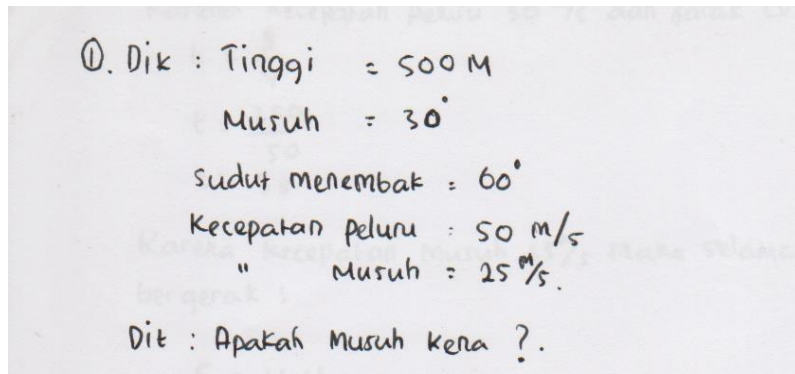 ①. Dik : Tinggi = 500 M
Musuh = 30°
Sudut menembak = 60°
Kecepatan Peluru = 50 m/s
" Musuh = 25 m/s.
Dit : Apakah Musuh Kena ?.